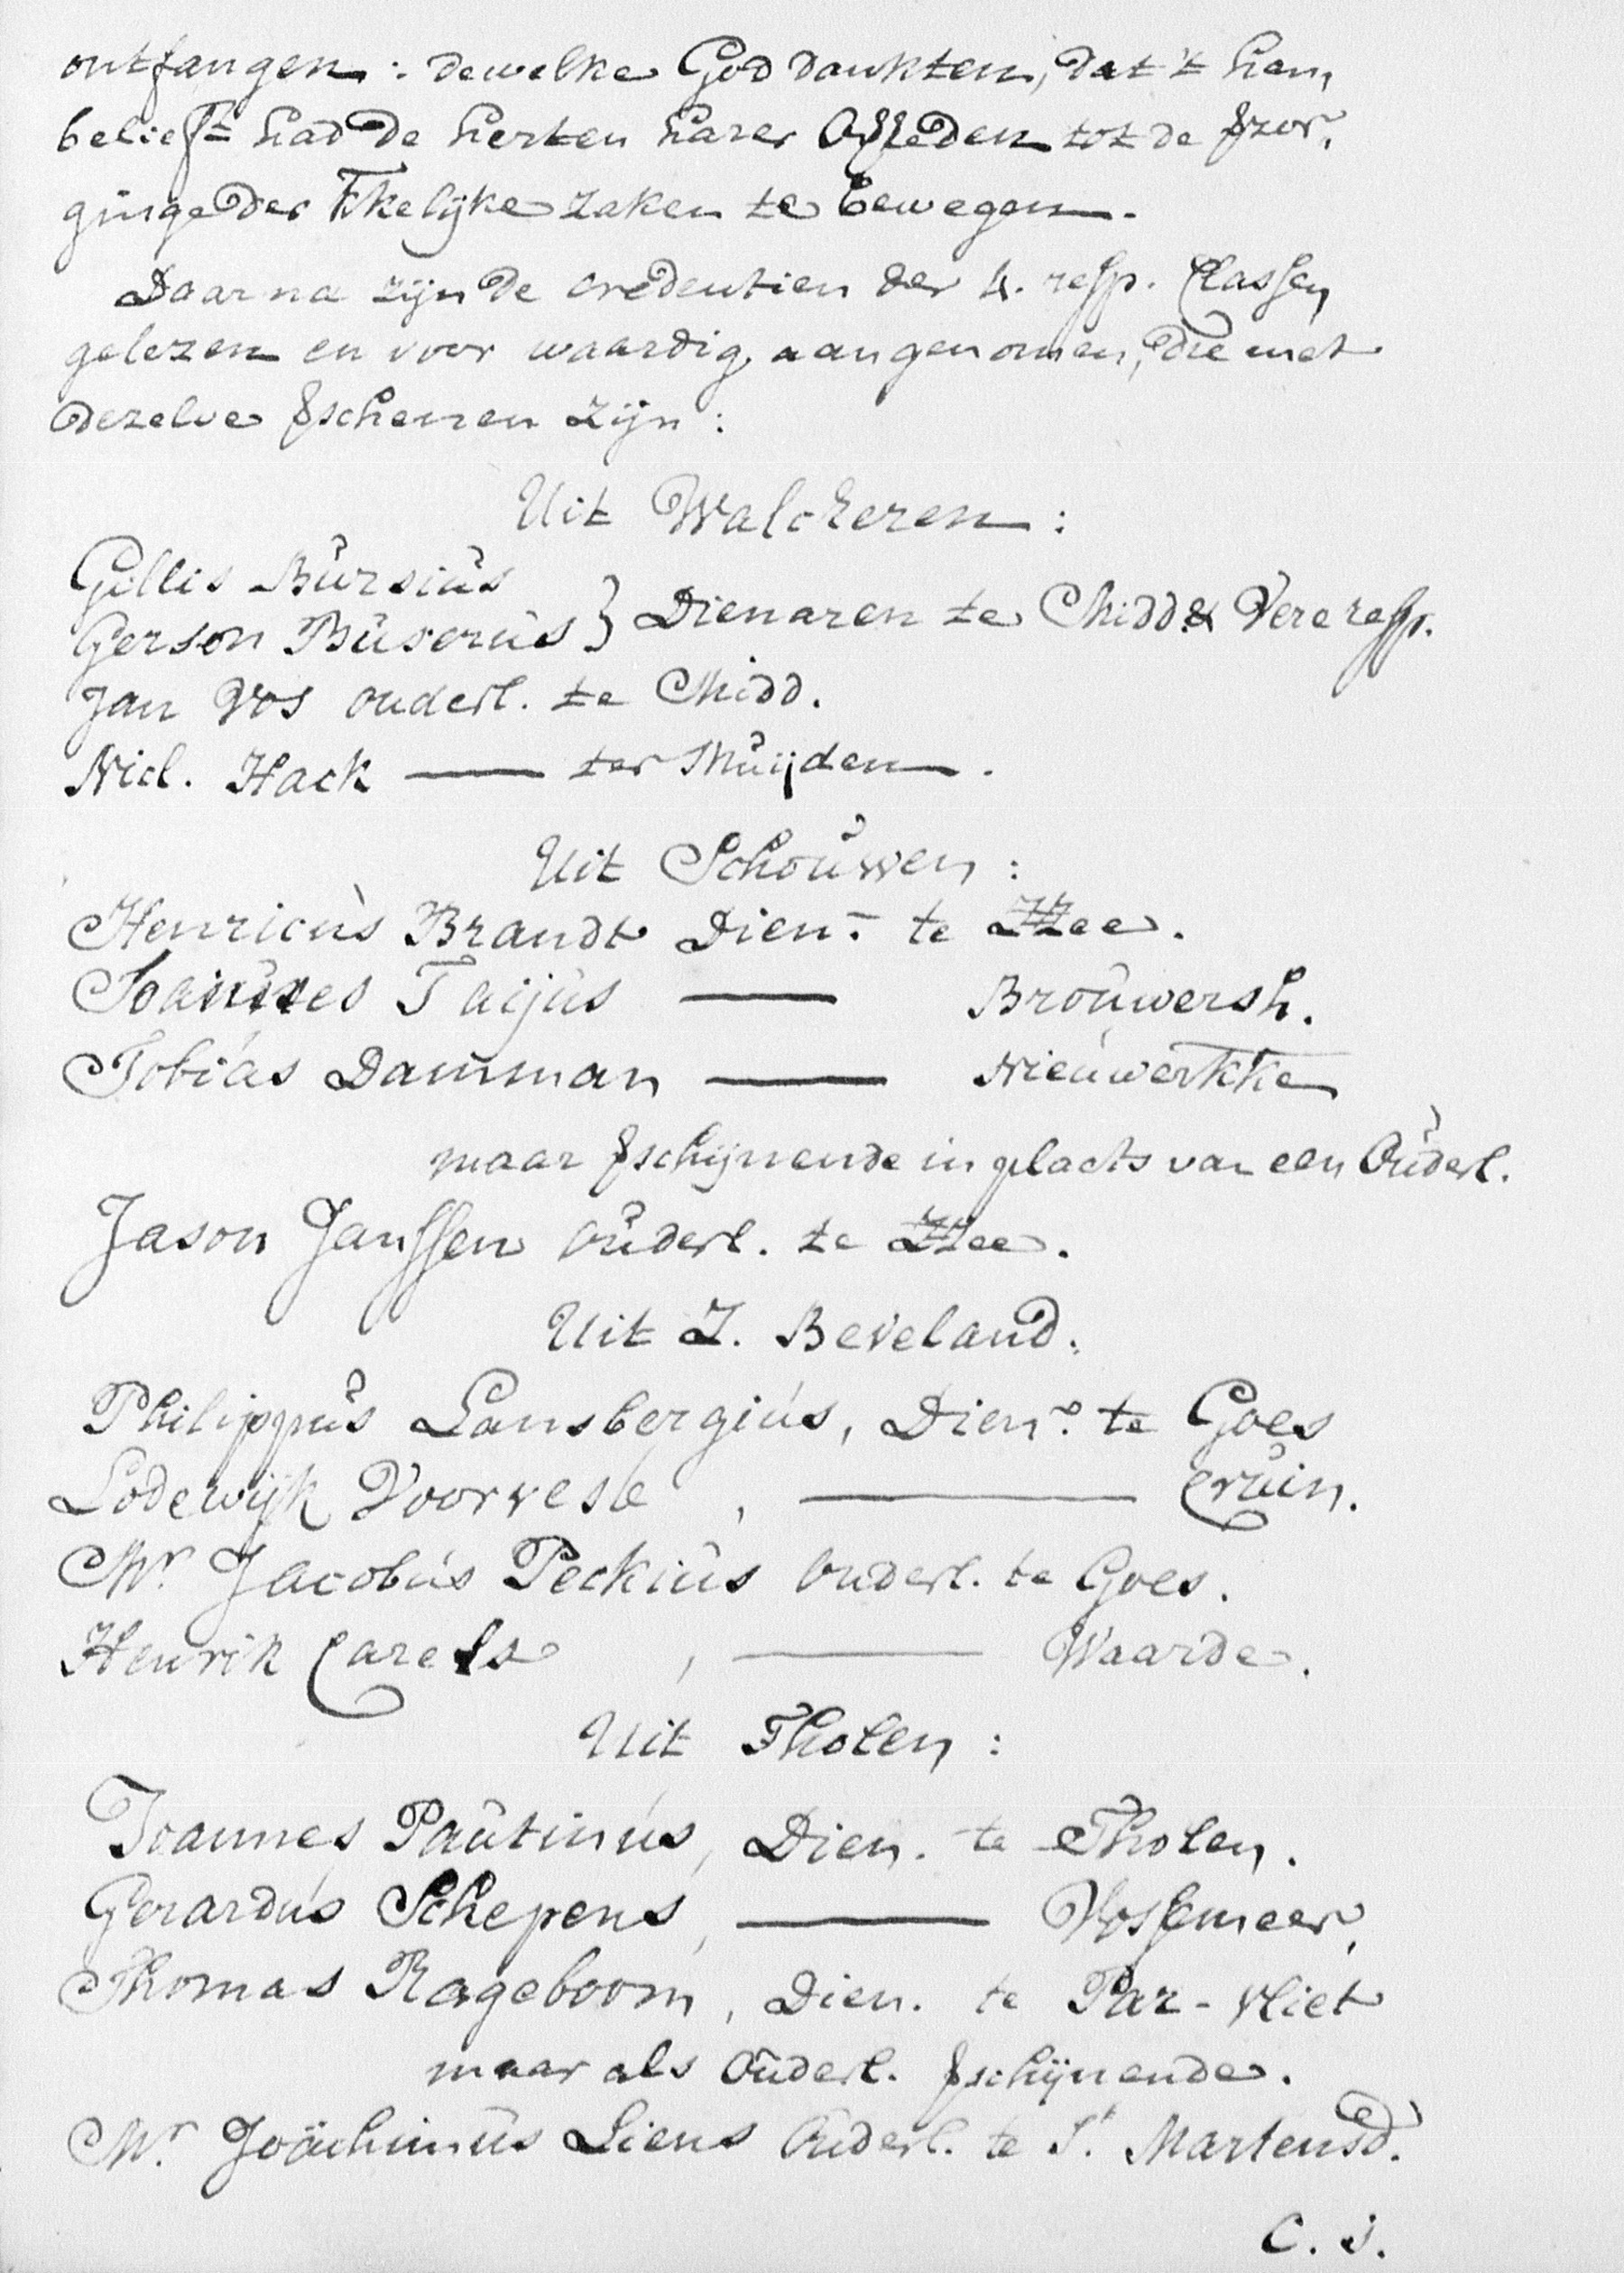 ontfangen: dewelke God dankten, dat 't hem
belieft had de herten harer Opheden tot de ƒzor,
ginge der Kkelyke zaken te bewegen.
Daarna zijn de credentien der 4. resp. Classen
gelezen en voor waardig aangenomen, die met
dezelve ƒschenen zijn:
Uit Walcheren:
Gillis Bursius
Gerson Buserus } Dienaren te Midd. & Vere resp.
Jan Vos ouderl. te Midd.
Nicl. Hack — ter Muijden.
Uit Schouwen:
Henricus Brandt Dien.r te ZZee.
Joannes Taijus — Brouwersh.
Tobias Damman — Nieuwerkke
maar ƒschijnende in plaets van een Ouderl.
Jason Janssen ouderl. te ZZee.
Uit Z. Beveland.
Philippus Lansbergius, Dien.r te Goes
Lodewijk Voorreste, — Cruin.
Mr. Jacobus Peckius Ouderl. te Goes.
Henrik Carels, — Waarde.
Uit Tholen:
Joannes Pautinus, Dien. te Tholen.
Gerardus Schepens, — Vosmeer,
Thomas Rageboom, Dien. te Par-vliet
maar als Ouderl. ƒschijnende.
Mr. Joachimus Liens Ouderl. te St. Martensd.
C. s.